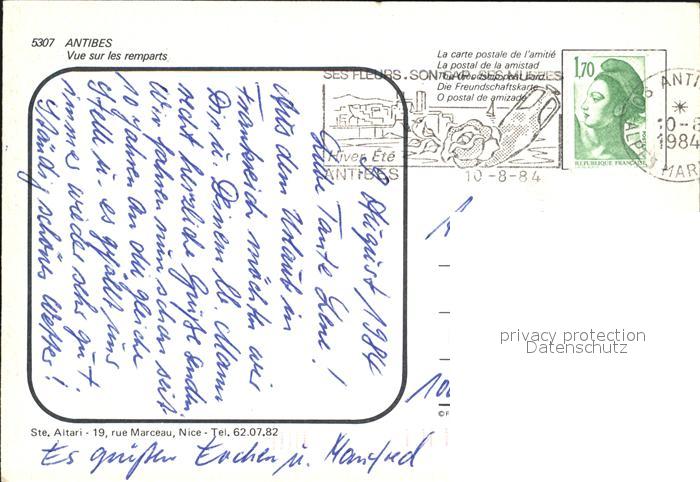 5307 ANTIBES
Vue sur les remparts
La carte postale de l'amitié
La postal de la amistad
The friendship post card
Die Freundschaftskarte
O postal de amizade
SES FLEURS. SON CAP. SES MUSÉES
Hiver Été
ANTIBES
10-8-84
1,70
REPUBLIQUE FRANÇAISE
06 ANTI
10-8
1984
ALPES MAR
8. August 1984
Liebe Tante Lene!
Aus dem Urlaub in
Frankreich möchten wir
Dir u. Deinem lb. Mann
recht herzliche Grüße senden.
Wir fahren nun schon seit
10 Jahren an die gleiche
Stelle u. es gefällt uns
immer wieder sehr gut.
Ständig schönes Wetter!
100
privacy protection
Datenschutz
Ste. Altari - 19, rue Marceau, Nice - Tel. 62.07.82
Es grüßen Lochen u. Manfred